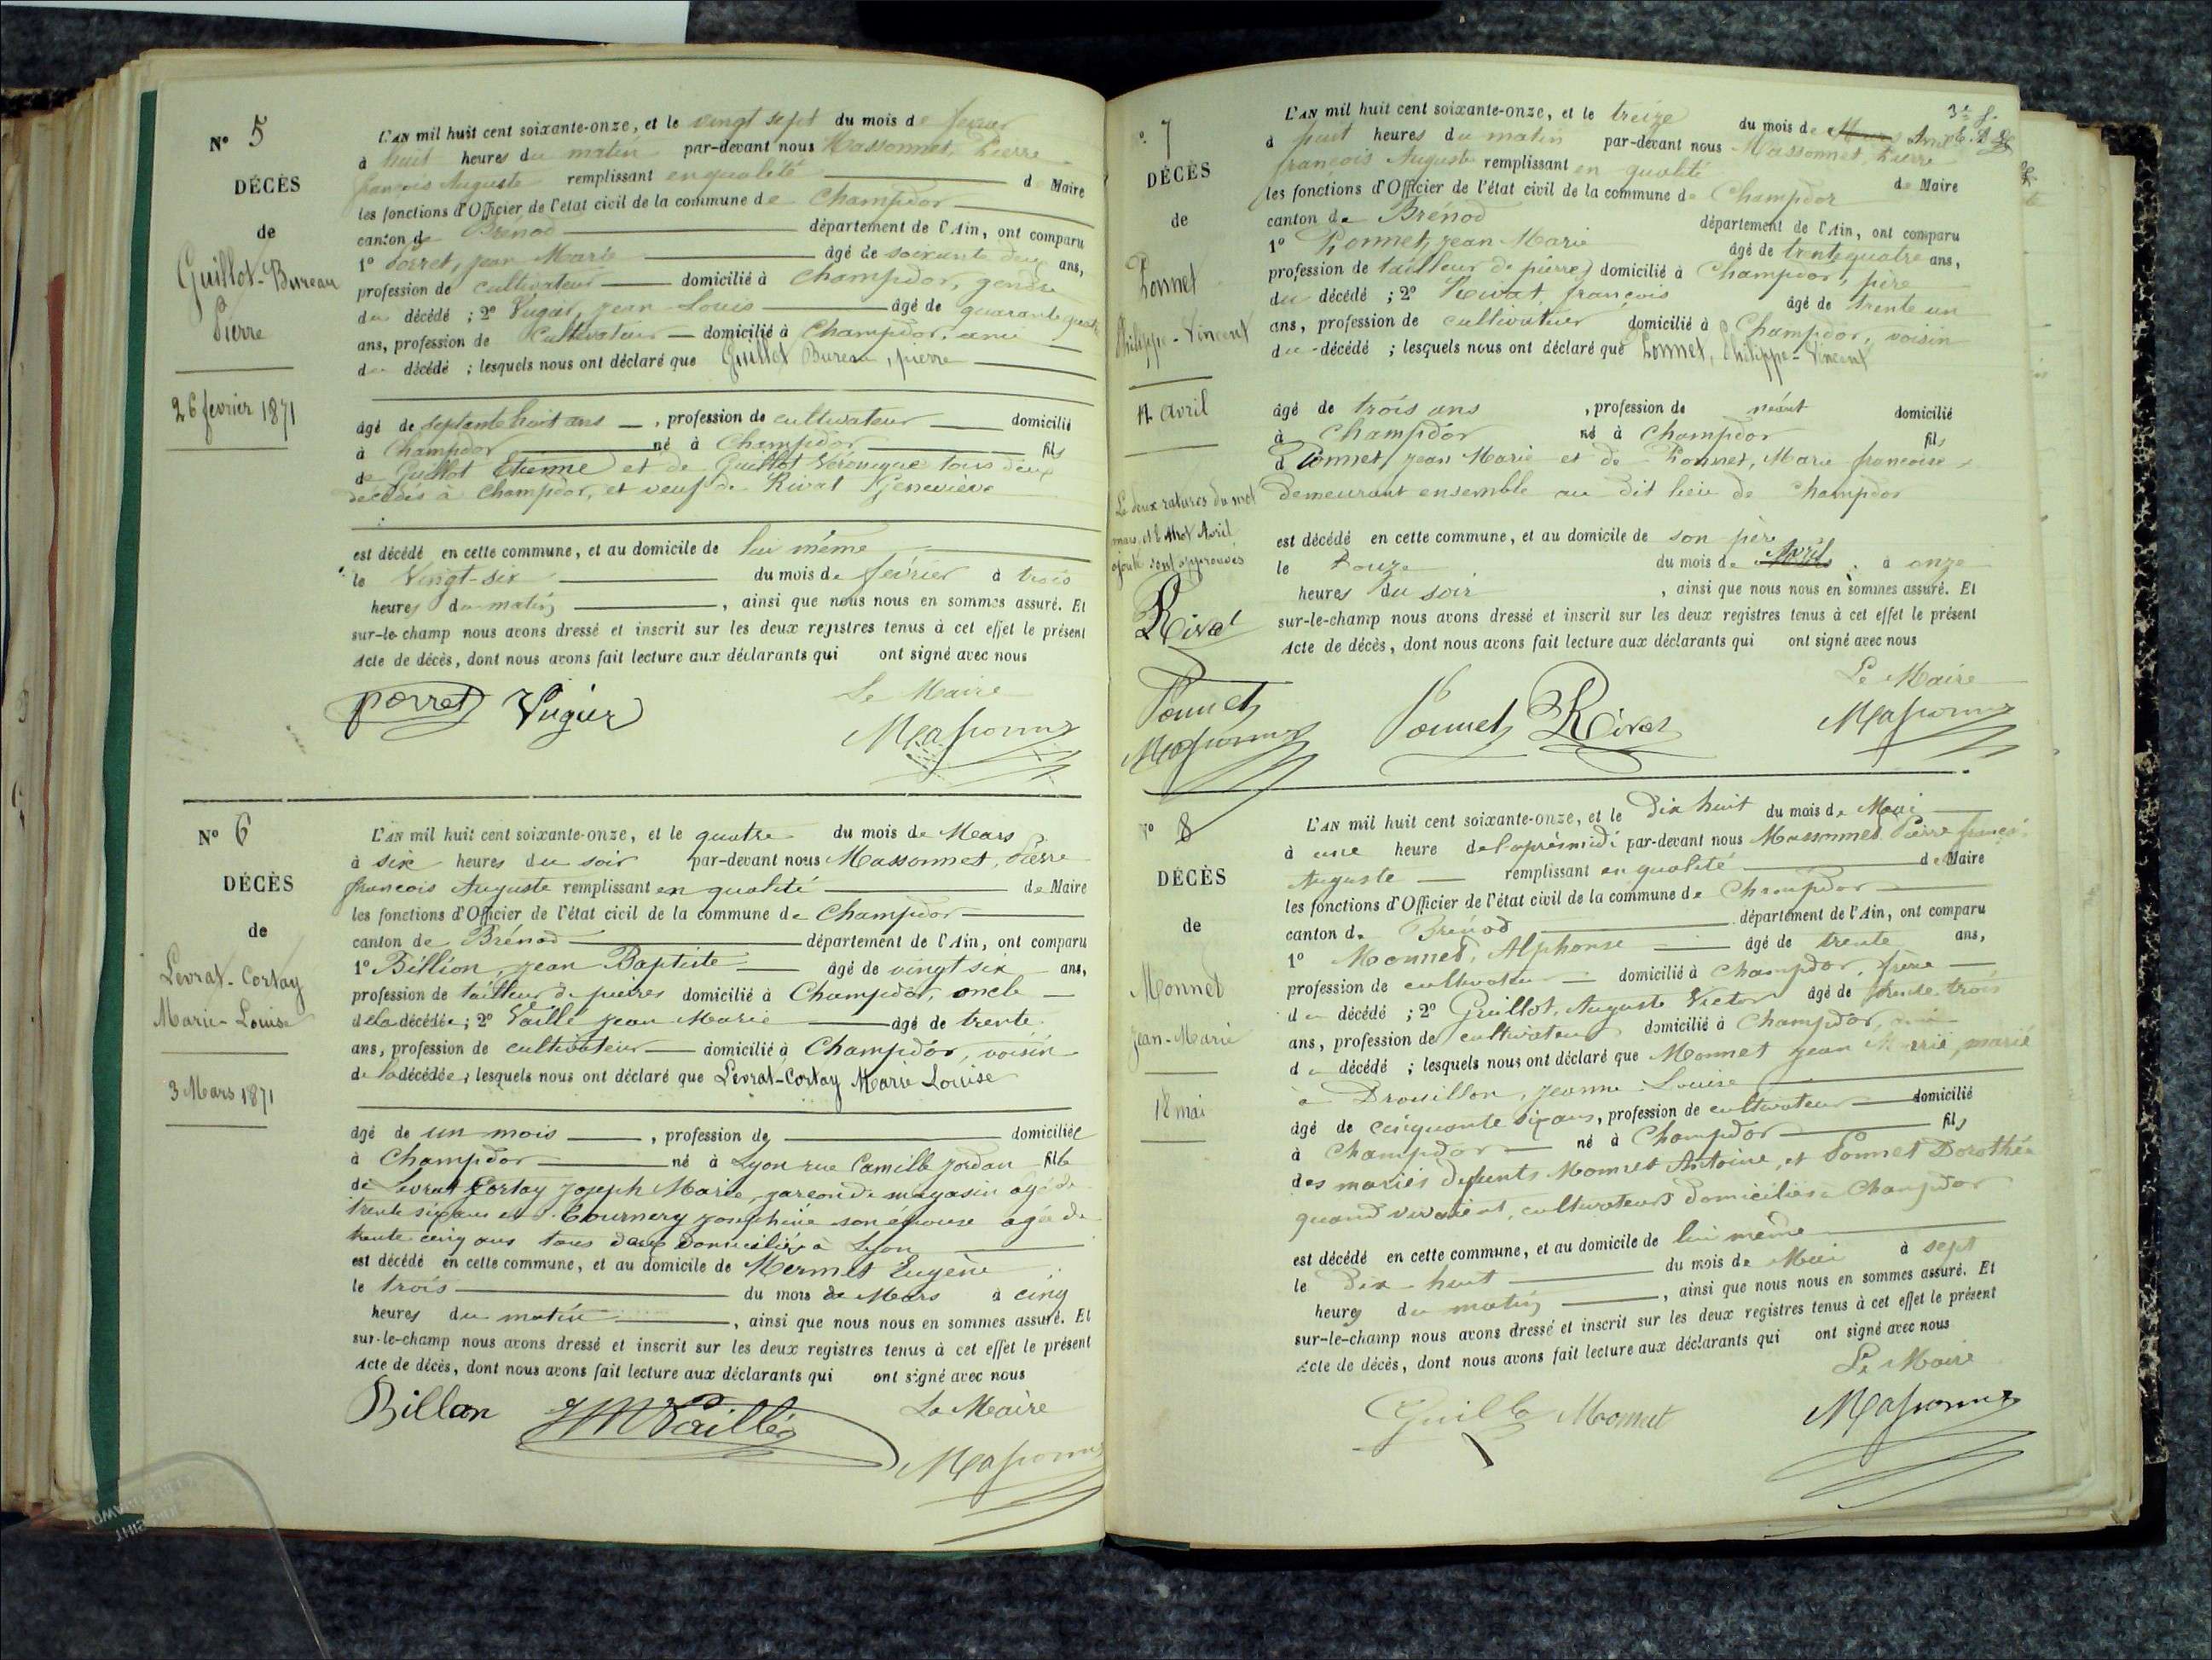 N° 5
DÉCÈS
de
Guillot-Bureau
Pierre
26 fevrier 1871
L'AN mil huit cent soixante-onze, et le vingt sept du mois de fevrier
à huit heures du matin par-devant nous Massonnet, Pierre
françois Auguste remplissant en qualité de Maire
les fonctions d'Officier de l'état civil de la commune de Champdor
canton de Brénod département de l'Ain, ont comparu
1° Porret, jean Marie âgé de soixante deux ans,
profession de cultivateur domicilié à Champdor, gendre
du décédé ; 2° Vugier, jean Louis âgé de quarante quatre
ans, profession de Cultivateur domicilié à Champdor, ami
du décédé ; lesquels nous ont déclaré que Guillot Bureau, pierre
âgé de septante huit ans, profession de cultivateur domicilié
à Champdor né à Champdor fils
de Guillot Etienne et de Guillot Véronique tous deux
décédés à Champdor, et veuf de Rivat Geneviève
est décédé en cette commune, et au domicile de lui même
le Vingt-six du mois de fevrier à trois
heures du matin, ainsi que nous nous en sommes assuré. Et
sur-le-champ nous avons dressé et inscrit sur les deux registres tenus à cet effet le présent
Acte de décès, dont nous avons fait lecture aux déclarants qui ont signé avec nous
Le Maire
porret Vugier Massonnet
N° 6
DÉCÈS
de
Levrat-Cortay
Marie-Louise
3 Mars 1871
L'AN mil huit cent soixante-onze, et le quatre du mois de Mars
à six heures du soir par-devant nous Massonnet, Pierre
francois Auguste remplissant en qualité de Maire
les fonctions d'Officier de l'état civil de la commune de Champdor
canton de Brénod département de l'Ain, ont comparu
1° Billion, jean Baptiste âgé de vingt six ans,
profession de tailleur de pierres domicilié à Champdor, oncle
de la décédée; 2° Vaillé jean Marie âgé de trente
ans, profession de cultivateur domicilié à Champdor, voisin
de la décédée; lesquels nous ont déclaré que Levrat-Cortay Marie Louise
âgé de un mois, profession de domiciliée
à Champdor né à Lyon rue Camille Jordan fille
de Levrat Cortay Joseph Marie, garcon de magasin agé de
trente six ans et Tournery Josephine son épouse agée de
trente cinq ans tous deux domiciliés à Lyon
est décédé en cette commune, et au domicile de Mermet Eugène
le trois du mois de Mars à cinq
heures du matin, ainsi que nous nous en sommes assuré. Et
sur-le-champ nous avons dressé et inscrit sur les deux registres tenus à cet effet le présent
Acte de décès, dont nous avons fait lecture aux déclarants qui ont signé avec nous
Le Maire
Billon JM Vaillé Massonnet
3e f.
° 7
DÉCÈS
de
Ponnet
Philippe-Vincent
12 avril
Le deux ratures du mot
mars et le mot Avril
ajouté sont approuvés
Rivat
Ponnet
Massonnet
L'AN mil huit cent soixante-onze, et le treize du mois de Mars Avril
à huit heures du matin par-devant nous Massonnet, Pierre
françois Auguste remplissant en qualité de Maire
les fonctions d'Officier de l'état civil de la commune de Champdor
canton de Brénod département de l'Ain, ont comparu
1° Ponnet, jean Marie âgé de trente quatre ans,
profession de tailleur de pierres domicilié à Champdor, père
du décédé ; 2° Rivat, françois âgé de trente un
ans, profession de cultivateur domicilié à Champdor, voisin
du décédé ; lesquels nous ont déclaré que Ponnet, Philippe-Vincent
âgé de trois ans, profession de néant domicilié
à Champdor né à Champdor fils
d Ponnet, jean Marie et de Ponnet, Marie francoise
demeurant ensemble au dit lieu de Champdor
est décédé en cette commune, et au domicile de son père
le Douze du mois de Mars Avril à onze
heures du soir, ainsi que nous nous en sommes assuré. Et
sur-le-champ nous avons dressé et inscrit sur les deux registres tenus à cet effet le présent
Acte de décès, dont nous avons fait lecture aux déclarants qui ont signé avec nous
Le Maire
Ponnet Rivat Massonnet
N° 8
DÉCÈS
de
Monnet
Jean-Marie
18 mai
L'AN mil huit cent soixante-onze, et le Dix huit du mois de Mai
à une heure de l'aprésmidi par-devant nous Massonnet Pierre françois
Auguste remplissant en qualité de Maire
les fonctions d'Officier de l'état civil de la commune de Champdor
canton de Brénod département de l'Ain, ont comparu
1° Monnet, Alphonse âgé de trente ans,
profession de cultivateur domicilié à Champdor, frère
du décédé ; 2° Guillot, Auguste Victor âgé de trente trois
ans, profession de cultivateur domicilié à Champdor, ami
du décédé ; lesquels nous ont déclaré que Monnet jean Marie, marié
à Drouillon, jeanne Louise
âgé de cinquante six ans, profession de cultivateur domicilié
à Champdor né à Champdor fils
des mariés défunts Monnet Antoine, et Ponnet Dorothée
quand vivaient, cultivateurs domiciliés à Champdor
est décédé en cette commune, et au domicile de lui même
le Dix-huit du mois de Mai à sept
heures du matin, ainsi que nous nous en sommes assuré. Et
sur-le-champ nous avons dressé et inscrit sur les deux registres tenus à cet effet le présent
Acte de décès, dont nous avons fait lecture aux déclarants qui ont signé avec nous
Le Maire
Guillo Monnet Massonnet